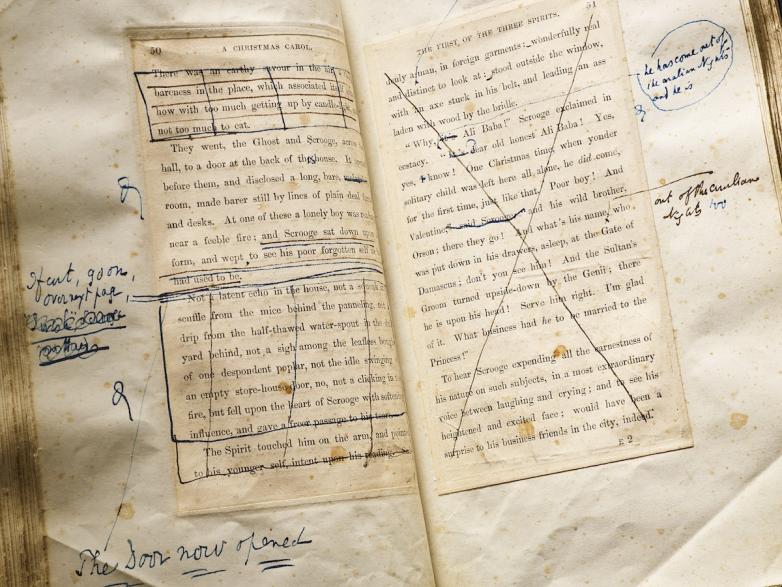 50
A CHRISTMAS CAROL.
There was an earthy savour in the
bareness in the place, which associated
how with too much getting up by candle
not too much to eat.
They went, the Ghost and Scrooge,
hall, to a door at the back of the house. It
before them, and disclosed a long, bare,
room, made barer still by lines of plain deal
and desks. At one of these a lonely boy was
near a feeble fire; and Scrooge sat down
form, and wept to see his poor forgotten self
had used to be.
Not a latent echo in the house, not a
scuffle from the mice behind the panneling, not
drip from the half-thawed water-spout in the
yard behind, not a sigh among the leafless
of one despondent poplar, not the idle swinging
an empty store-house door, no, not a clicking in
fire, but fell upon the heart of Scrooge with
influence, and gave a freer passage to his tears.
The Spirit touched him on the arm, and
to his younger self, intent upon his reading.
If cut, go on,
over next page,
The Door now opened
THE FIRST OF THE THREE SPIRITS.
51
denly a man, in foreign garments: wonderfully real
and distinct to look at: stood outside the window,
with an axe stuck in his belt, and leading an ass
laden with wood by the bridle.
"Why, Ali Baba!" Scrooge exclaimed in
ecstacy. dear old honest Ali Baba! Yes,
yes, I know! One Christmas time, when yonder
solitary child was left here all alone, he did come,
for the first time, just like that. Poor boy! And
Valentine," said Scrooge, and his wild brother,
Orson; there they go! And what's his name, who
was put down in his drawers, asleep, at the Gate of
Damascus; don't you see him! And the Sultan's
Groom turned upside-down by the Genii; there
he is upon his head! Serve him right. I'm glad
of it. What business had he to be married to the
Princess!"
To hear Scrooge expending all the earnestness of
his nature on such subjects, in a most extraordinary
voice between laughing and crying; and to see his
heightened and excited face; would have been a
surprise to his business friends in the city, indeed.
E 2
he has come out of
the Arabian Nights
and he is
out of the
Nights too